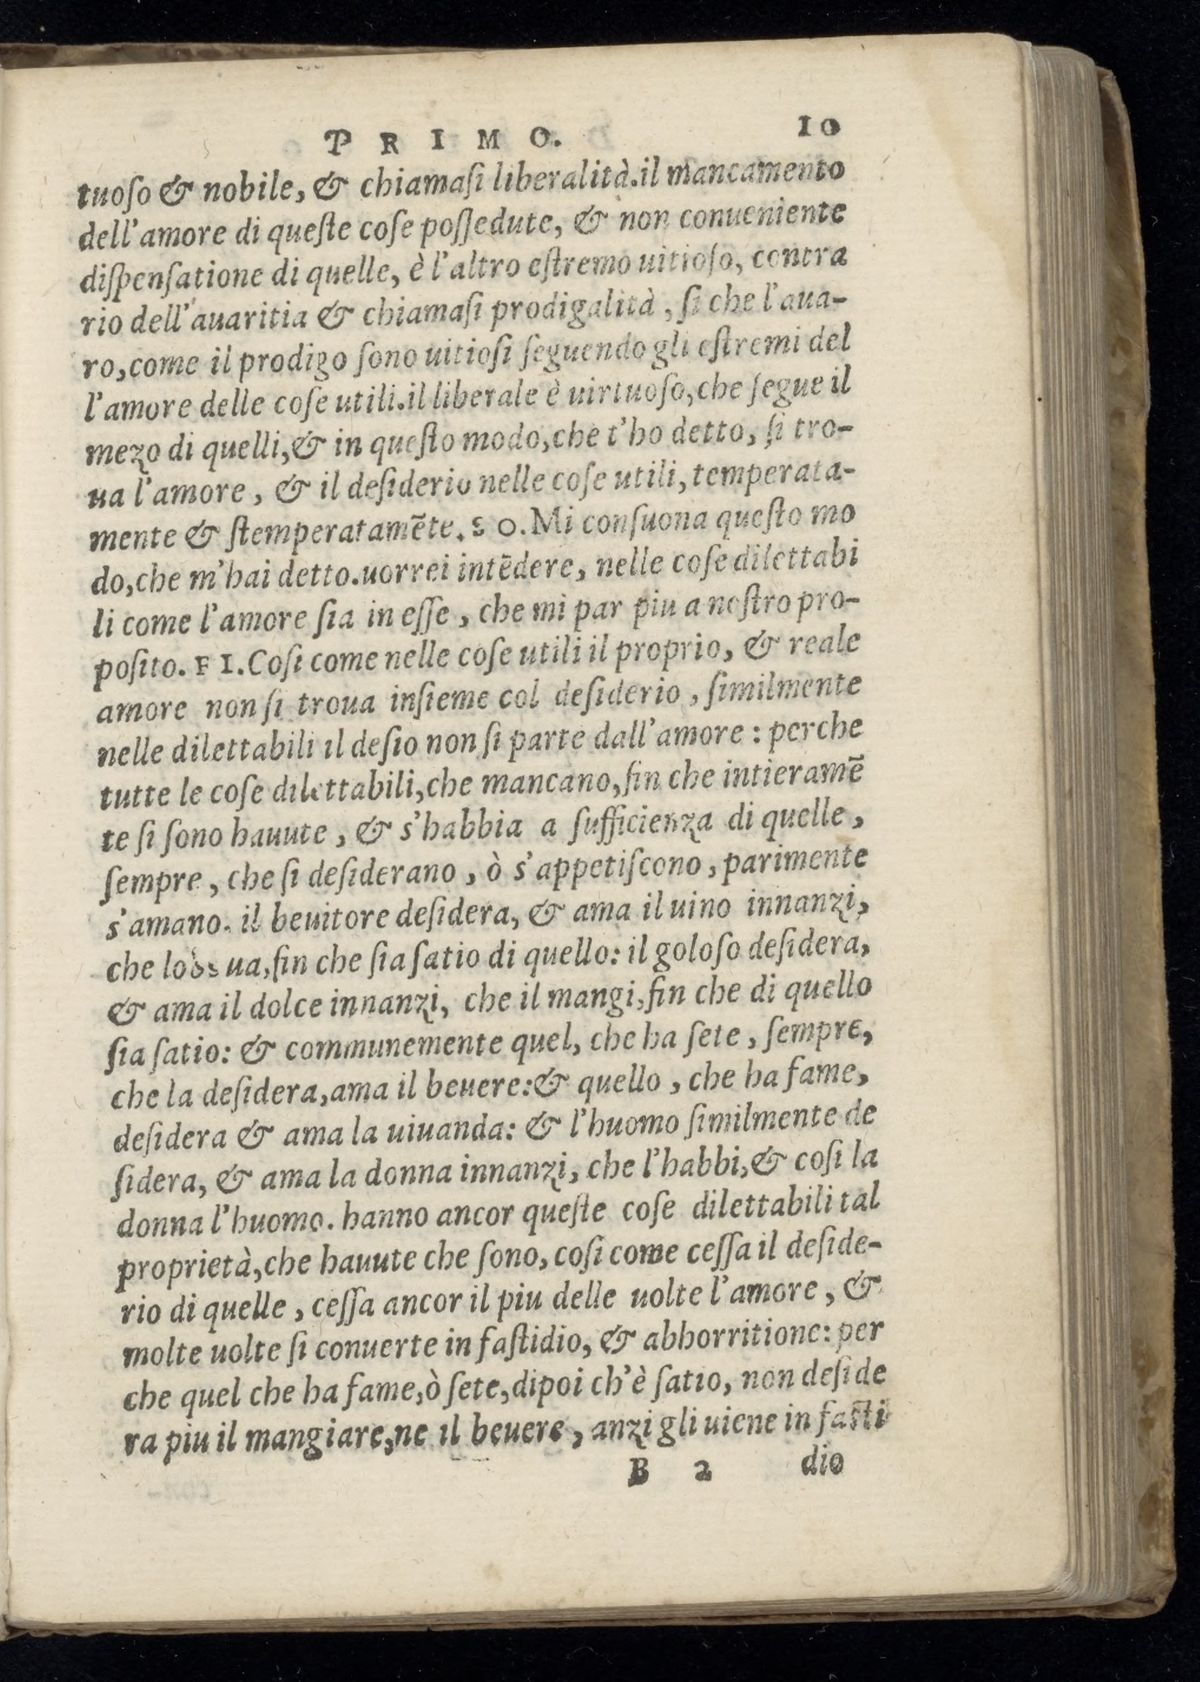 PRIMO. 10
tuoſo & nobile, & chiamaſi liberalità.il mancamento
dell'amore di queſte coſe poſſedute, & non conueniente
diſpenſatione di quelle, è l'altro eſtremo uitioſo, contra
rio dell'auaritia & chiamaſi prodigalità, ſi che l'aua-
ro,come il prodigo ſono uitioſi ſeguendo gli eſtremi del
l'amore delle coſe utili.il liberale è uirtuoſo,che ſegue il
mezo di quelli,& in queſto modo,che t'ho detto, ſi tro-
ua l'amore, & il deſiderio nelle coſe utili, temperata-
mente & ſtemperatamēte. SO.Mi conſuona queſto mo
do,che m'hai detto.uorrei intēdere, nelle coſe dilettabi
li come l'amore ſia in eſſe, che mi par piu a noſtro pro-
poſito. FI.Coſi come nelle coſe utili il proprio, & reale
amore non ſi troua inſieme col deſiderio, ſimilmente
nelle dilettabili il deſio non ſi parte dall'amore: perche
tutte le coſe dilettabili,che mancano,fin che intieramē
te ſi ſono hauute, & s'habbia a ſufficienza di quelle,
ſempre, che ſi deſiderano, ò s'appetiſcono, parimente
s'amano. il beuitore deſidera, & ama il uino innanzi,
che lo ua,fin che ſia ſatio di quello: il goloſo deſidera,
& ama il dolce innanzi, che il mangi,fin che di quello
ſia ſatio: & communemente quel, che ha ſete, ſempre,
che la deſidera,ama il beuere:& quello, che ha fame,
deſidera & ama la uiuanda: & l'huomo ſimilmente de
ſidera, & ama la donna innanzi, che l'habbi,& coſi la
donna l'huomo. hanno ancor queſte coſe dilettabili tal
proprietà,che hauute che ſono, coſi come ceſſa il deſide-
rio di quelle, ceſſa ancor il piu delle uolte l'amore, &
molte uolte ſi conuerte in faſtidio, & abhorritione: per
che quel che ha fame,ò ſete,dipoi ch'è ſatio, non deſide
ra piu il mangiare,ne il beuere, anzi gli uiene in faſti
B 2 dio